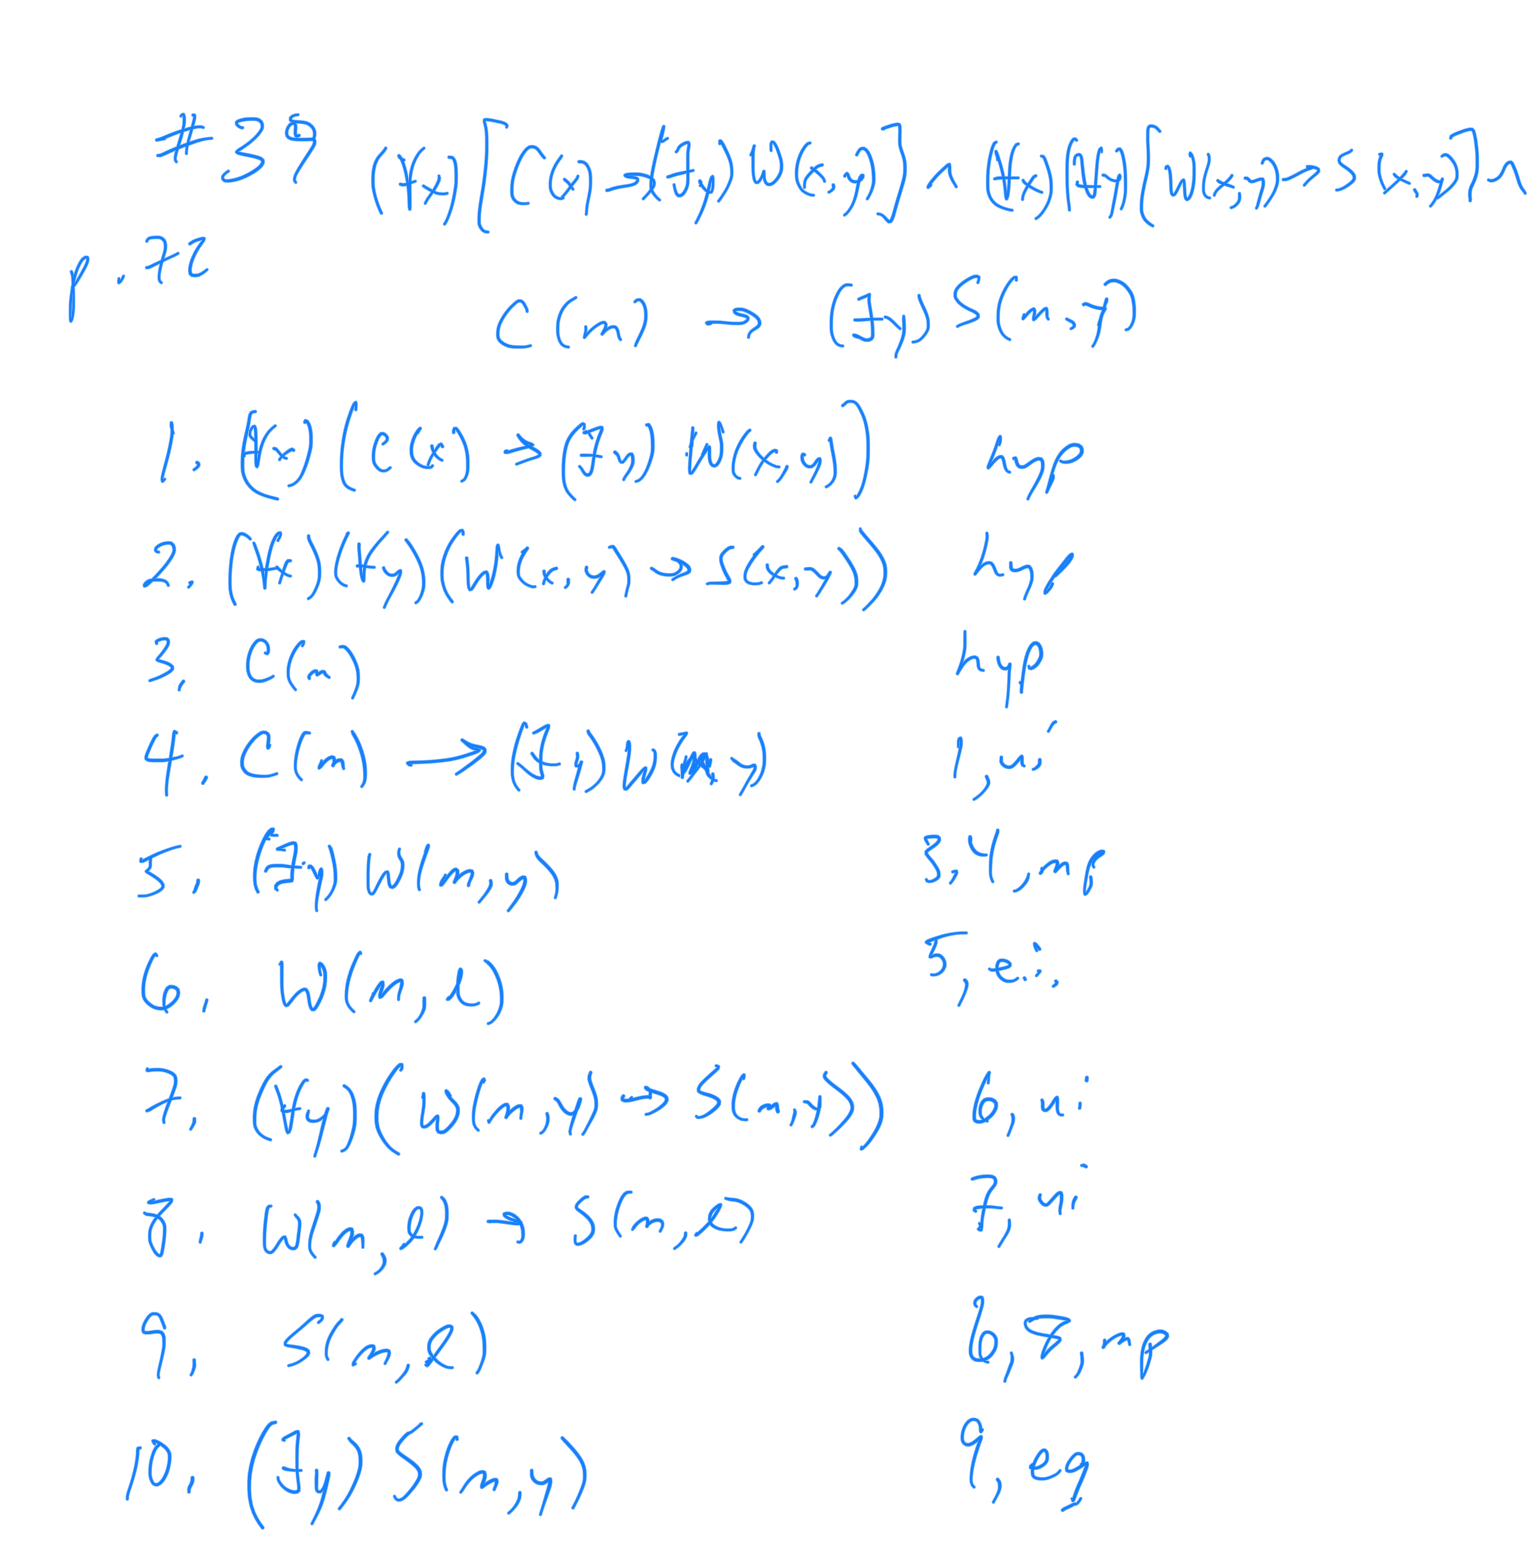 #39 (∀x)[C(x)→(∃y)W(x,y)] ∧ (∀x)(∀y)[W(x,y)→S(x,y)]∧
p.72
C(m) → (∃y)S(m,y)
1. (∀x)(C(x) → (∃y) W(x,y)) hyp
2. (∀x)(∀y)(W(x,y) → S(x,y)) hyp
3. C(m) hyp
4. C(m) → (∃y)W(m,y) 1, ui
5. (∃y) W(m,y) 3,4, mp
6. W(m,l) 5, e.i.
7. (∀y)(W(m,y) → S(m,y)) 6, ui
8. W(m,l) → S(m,l) 7, ui
9. S(m,l) 6,8, mp
10. (∃y) S(m,y) 9, eg